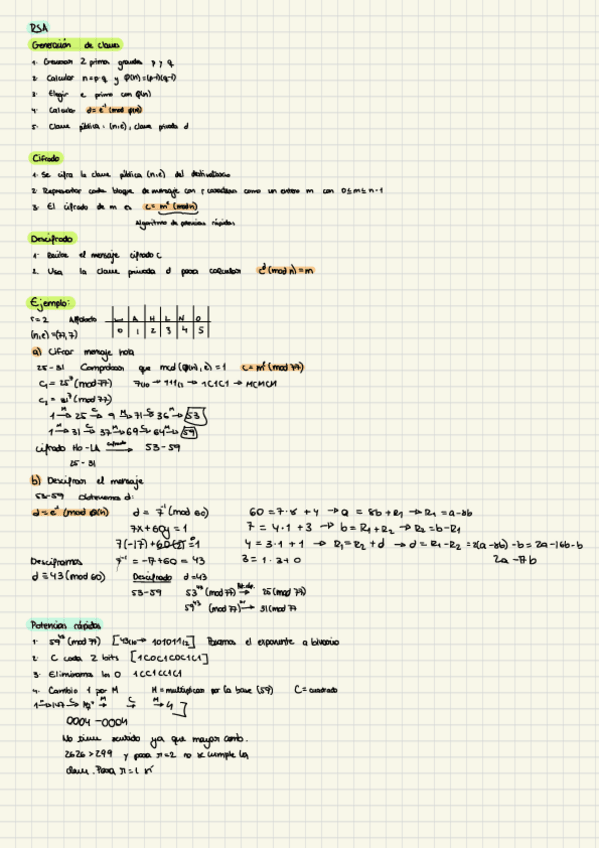 RSA
Generación de claves
1. Generar 2 primos grandes p y q
2. Calcular n=p·q y φ(n)=(p-1)(q-1)
3. Elegir e primo con φ(n)
4. Calcular d=e⁻¹(mod φ(n))
5. Clave pública: (n,e), clave privada d
Cifrado
1. Se cifra la clave pública (n,e) del destinatario
2. Representar cada bloque de mensaje con r caracteres como un entero m con 0≤m≤n-1
3. El cifrado de m es c=mᵉ(mod n)
Algoritmo de potencias rápidas
Descifrado
1. Recibe el mensaje cifrado c
2. Usa la clave privada d para calcular cᵈ(mod n)=m
Ejemplo:
r=2 Alfabeto ␣ A H L N O
(n,e)=(77,7) 0 1 2 3 4 5
a) Cifrar mensaje hola
25-31 Comprobar que mcd(φ(n),e)=1 c=mᵉ(mod 77)
C₁=25⁷(mod 77) 7₍₁₀ → 111₍₂ → 1C1C1 → MCMCM
C₂=31⁷(mod 77)
1 →M 25 →C 9 →M 71 →C 36 →M 53
1 →M 31 →C 37 →M 69 →C 64 →M 59
cifrado HO-LA → 53-59
25-31
b) Descifrar el mensaje
53-59 Obtenemos d:
d=e⁻¹(mod φ(n)) d = 7⁻¹(mod 60) 60=7·8+4 → a = 8b+R₁ → R₁=a-8b
7x+60y=1 7 = 4·1+3 → b=R₁+R₂ → R₂=b-R₁
7(-17)+60(2)=1 4 = 3·1+1 → R₁=R₂+d → d=R₁-R₂=2(a-8b)-b=2a-16b-b
Desciframos 7⁻¹=-17+60=43 3=1·3+0 2a-17b
d≡43(mod 60) Descifrado d=43
53-59 53⁴³(mod 77) → 25(mod 77)
59⁴³(mod 77) → 31(mod 77
Potencias rápidas
1. 59⁴³(mod 77) [43₍₁₀ → 101011₍₂] Pasamos el exponente a binario
2. C cada 2 bits [1C0C1C0C1C1]
3. Eliminamos los 0 1CC1CC1C1
4. Cambio 1 por M M=multiplicar por la base (59) C=cuadrado
0004-0004
No tiene sentido ya que mayor comb.
2626>299 y para r=2 no se cumple la
clave. Para r=1 sí